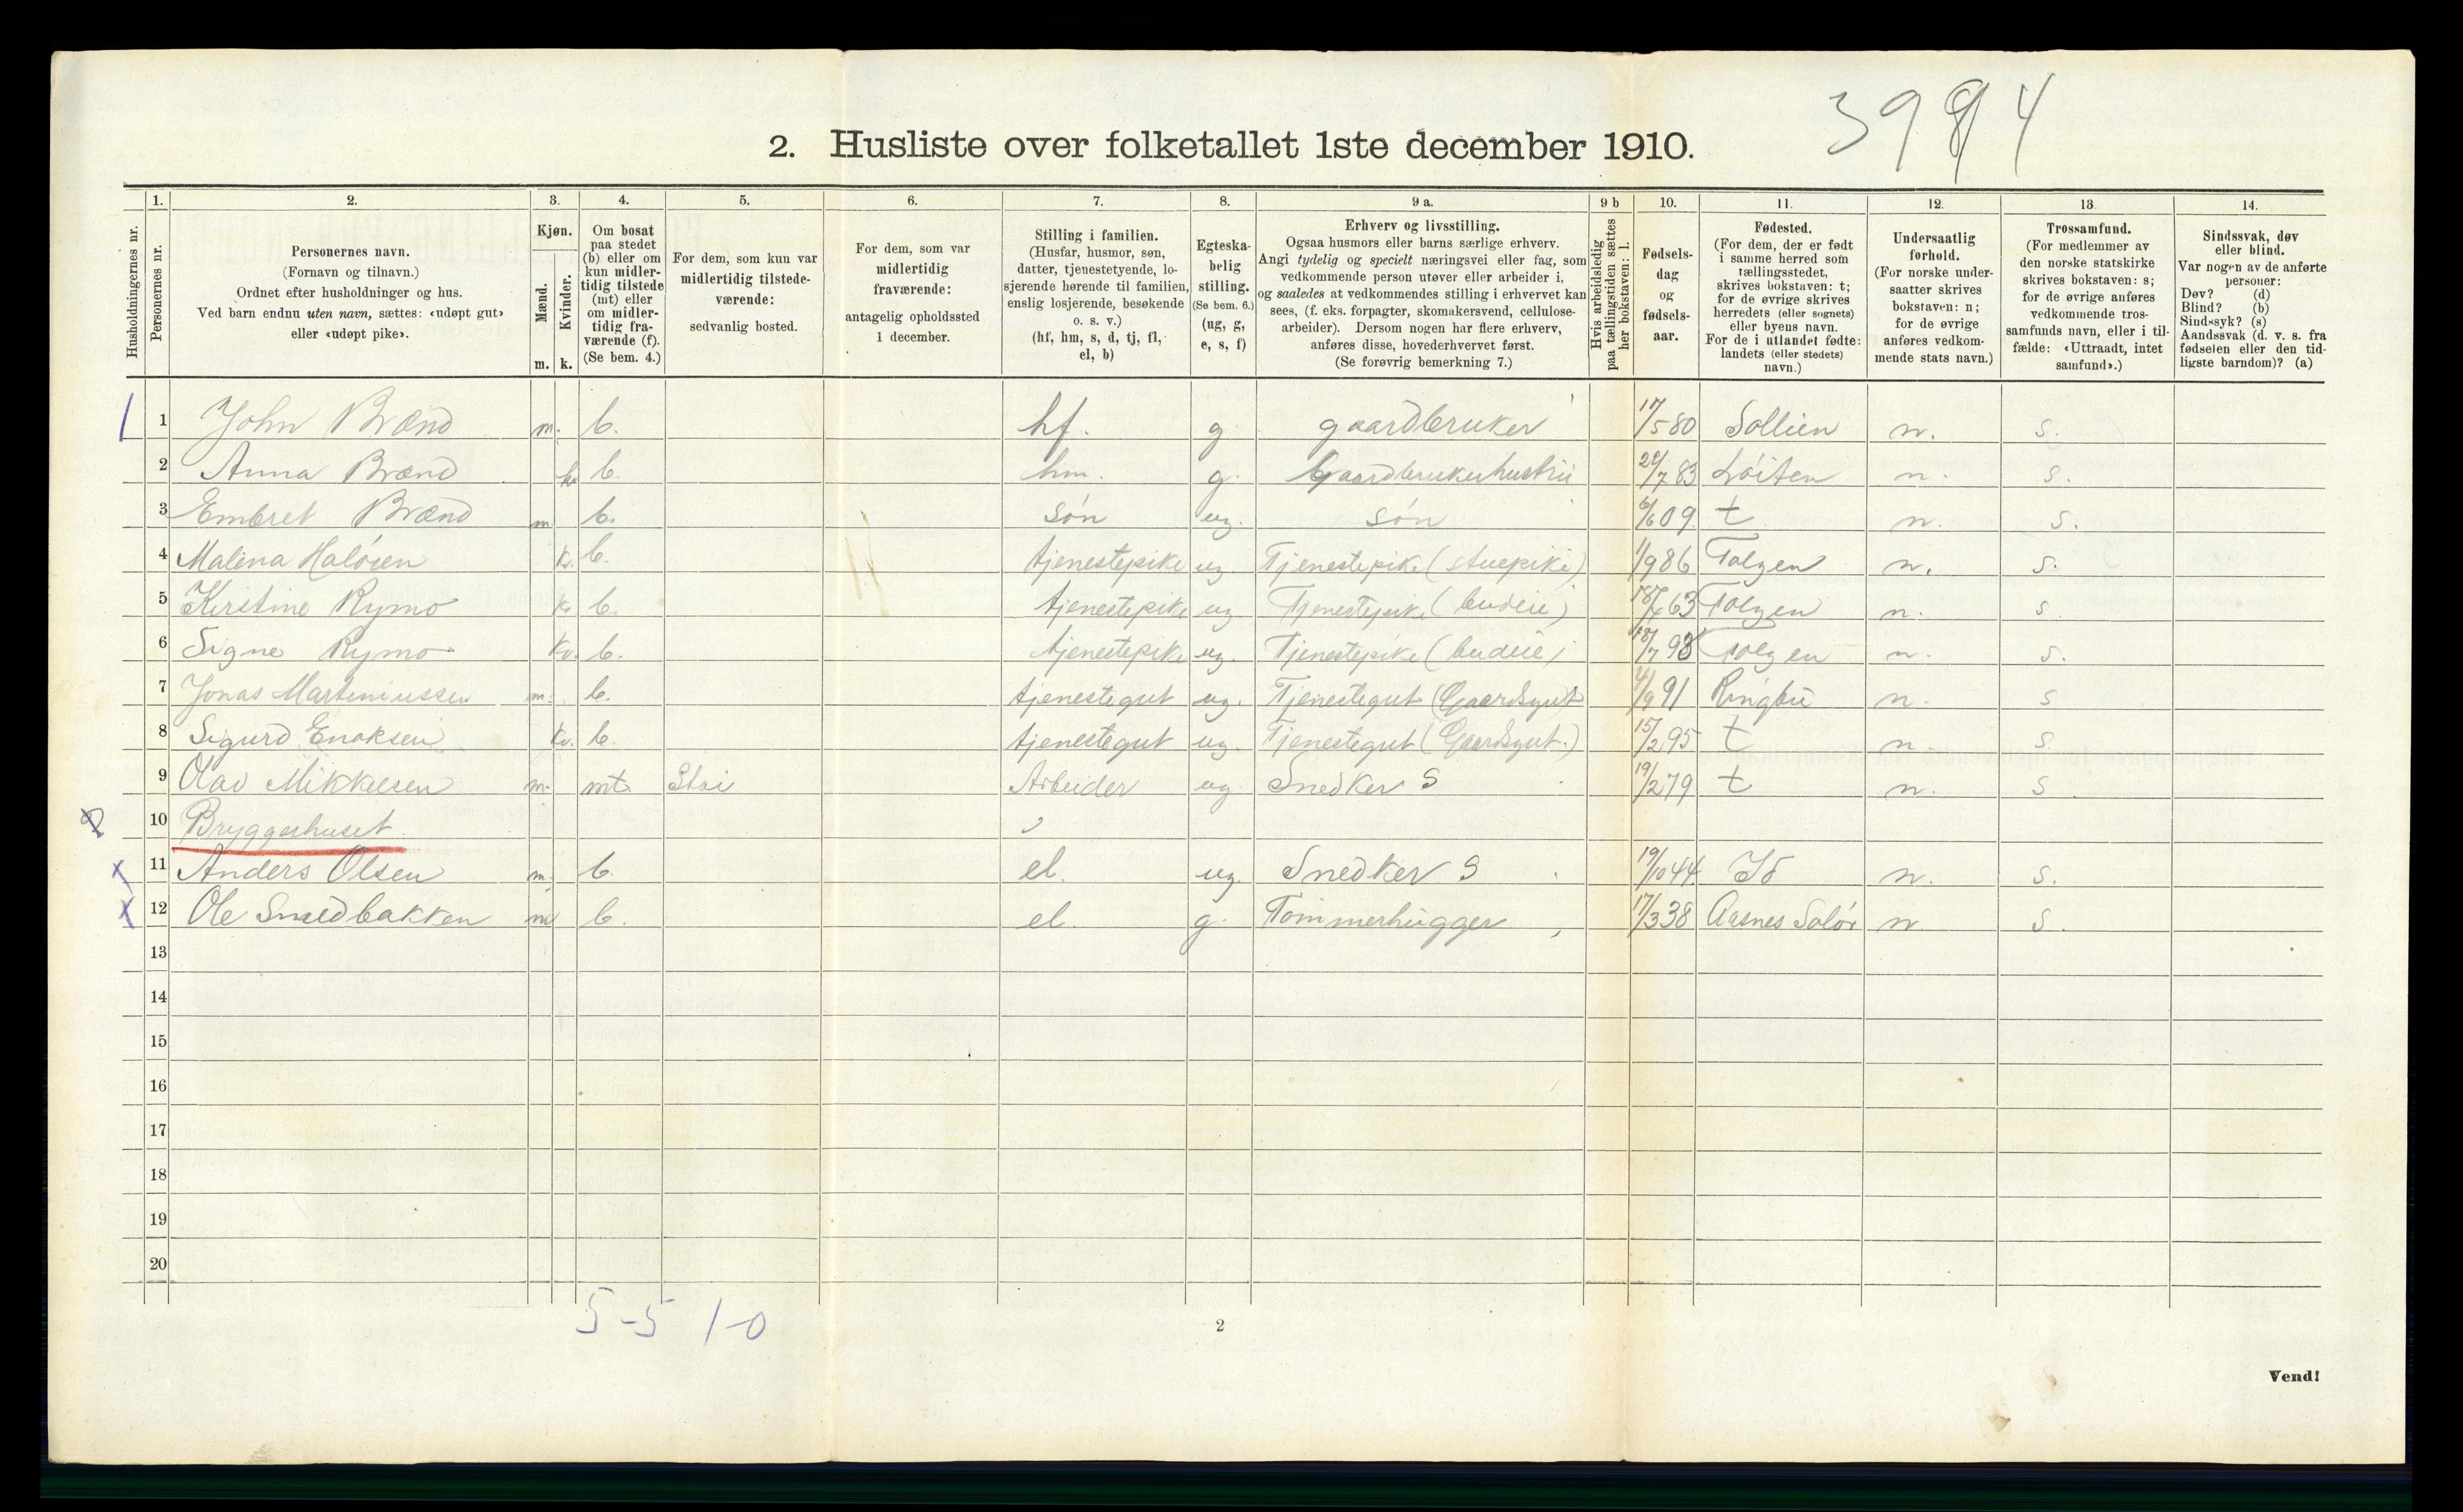 3984
2. Husliste over folketallet 1ste december 1910.
1. 2. 3. 4. 5. 6. 7. 8. 9 a. 9 b 10. 11. 12. 13 14.
Husholdningernes nr.
Personernes nr.
Personernes navn.
(Fornavn og tilnavn.)
Ordnet efter husholdninger og hus.
Ved barn endnu uten navn, sættes: «udøpt gut»
eller «udøpt pike».
Kjøn.
Mænd.
Kvinder.
m. k.
Om bosat
paa stedet
(b) eller om
kun midler-
tidig tilstede
(mt) eller
om midler-
tidig fra-
værende (f).
(Se bem. 4.)
For dem, som kun var
midlertidig tilstede-
værende:
sedvanlig bosted.
For dem, som var
midlertidig
fraværende:
antagelig opholdssted
1 december.
Stilling i familien.
(Husfar, husmor, søn,
datter, tjenestetyende, lo-
sjerende hørende til familien,
enslig losjerende, besøkende
o. s. v.)
(hf, hm, s, d, tj, fl,
el, b)
Egteska-
belig
stilling.
(Se bem. 6.)
(ug, g,
e, s, f)
Erhverv og livsstilling.
Ogsaa husmors eller barns særlige erhverv.
Angi tydelig og specielt næringsvei eller fag, som
vedkommende person utøver eller arbeider i,
og saaledes at vedkommendes stilling i erhvervet kan
sees, (f. eks. forpagter, skomakersvend, cellulose-
arbeider). Dersom nogen har flere erhverv,
anføres disse, hovederhvervet først.
(Se forøvrig bemerkning 7.)
Hvis arbeidsledig
paa tællingstiden sættes
her bokstaven: l.
Fødsels-
dag
og
fødsels-
aar.
Fødested.
(For dem, der er født
i samme herred som
tællingsstedet,
skrives bokstaven: t;
for de øvrige skrives
herredets (eller sognets)
eller byens navn.
For de i utlandet fødte:
landets (eller stedets)
navn.)
Undersaatlig
forhold.
(For norske under-
saatter skrives
bokstaven: n;
for de øvrige
anføres vedkom-
mende stats navn.)
Trossamfund.
(For medlemmer av
den norske statskirke
skrives bokstaven: s;
for de øvrige anføres
vedkommende tros-
samfunds navn, eller i til-
fælde: «Uttraadt, intet
samfund».)
Sindssvak, døv
eller blind.
Var nogen av de anførte
personer:
Døv? (d)
Blind? (b)
Sindssyk? (s)
Aandssvak (d. v. s. fra
fødselen eller den tid-
ligste barndom)? (a)
1 1 John Brænd m. b. hf. g gaardbruker 17/5 80 Sollien n. s.
2 Anna Brænd k. b. hm. g. Gaardbrukerhustru /7 83 Løiten n. s.
3 Embret Brænd m b. søn ug. søn 6/6 09. t n. s.
4 Malena Haløien k. b. tjenestepike ug. Tjenestepike (stuepike) 1/9 86 Tolgen n. s.
5 Kirstine Rymo k. b. tjenestepike ug Tjenestepike (budeie) 63 Tolgen n. s
6 Signe Rymo kv. b. tjenestepike ug. Tjenestepike (budeie) 18/7 98 Tolgen n. s.
7 Jonas Marteniussen m. b. tjenestegut ug. Tjenestegut (Gaardsgut 4/9 91 Ringbu n. s
8 Sigurd Enoksen kv. b. tjenestegut ug. Tjenestegut (Gaardsgut.) 15/2 95 t n. s
9 Olav Mikkelsen m. mt Stai Arbeider ug Snedker S 19/2 79 t n. s
10 Bryggerhuset.
x 11 Anders Olsen m. b. el. ug. Snedker S 19/10 44. n. s.
x 12 Ole Smedbakken m b. el. g. Tømmerhugger 17/3 38 Aasnes Solør n. s.
13
14
15
16
17
18
19
20
5-5 1-0
2
Vend!